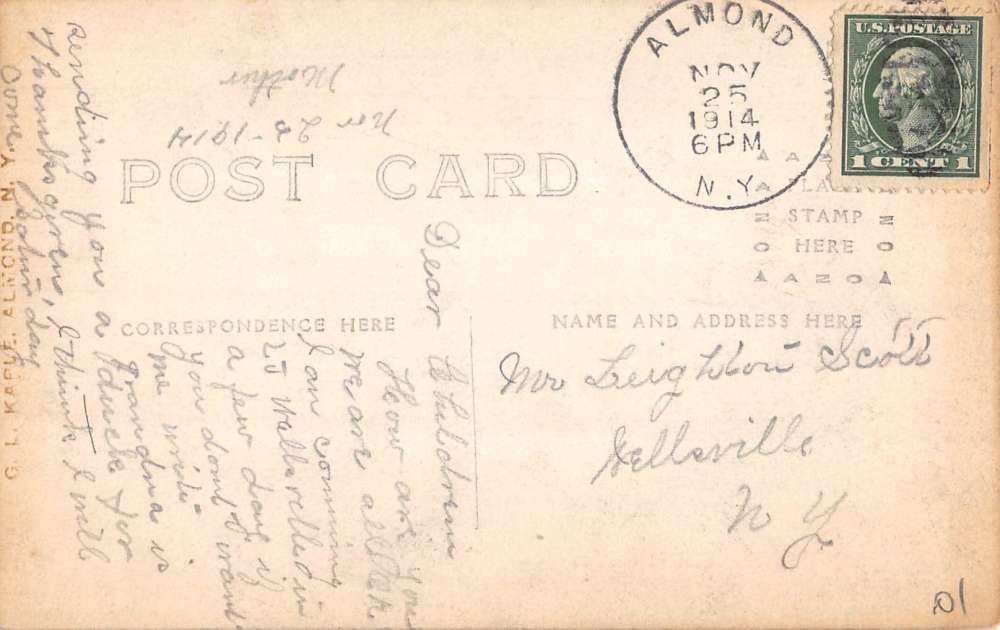 ALMOND
NOV
25
1914
6 PM
N.Y.
U.S. POSTAGE
1 CENT 1
POST CARD
PLACE
STAMP
HERE
AZO
CORRESPONDENCE HERE
NAME AND ADDRESS HERE
Mr Leighton Scott
Wellsville
N Y
Nov 25 - 1914
Dear Children
How are you
we are all
I am comming
to Wellsville in
a few days if
you dont want
me write
Grandma is
sending you a duck for
Thanksgiven, I think I will
come
Mother
ALMOND, N. Y.
01